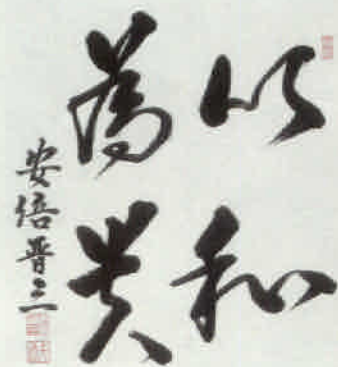 以和
為貴
安倍晋三